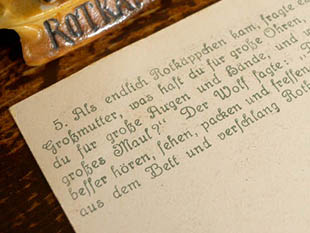 ROTKÄ
5. Als endlich Rotkäppchen kam, fragte es
Großmutter, was hast du für große Ohren,
du für große Augen und Hände, und w
großes Maul?" Der Wolf sagte: "D
besser hören, sehen, packen und fressen
aus dem Bett und verschlang Rotk